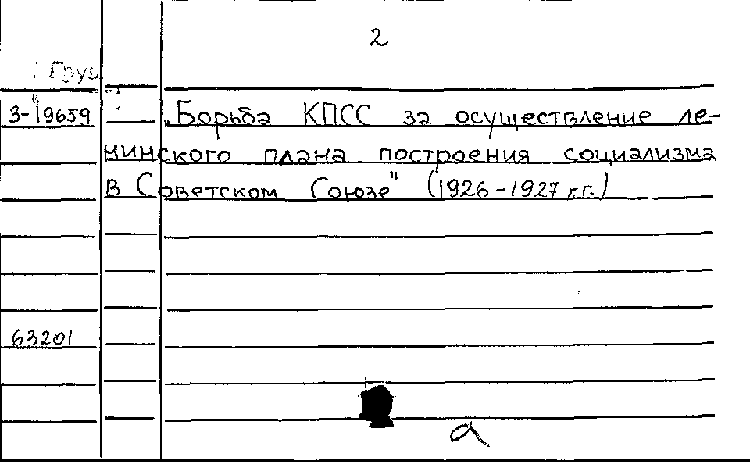 2
Груз
3-19659 „Борьба КПСС за осуществление ле-
нинского плана построения социализма
в Советском Союзе" (1926-1927 г.г.)
63201
а